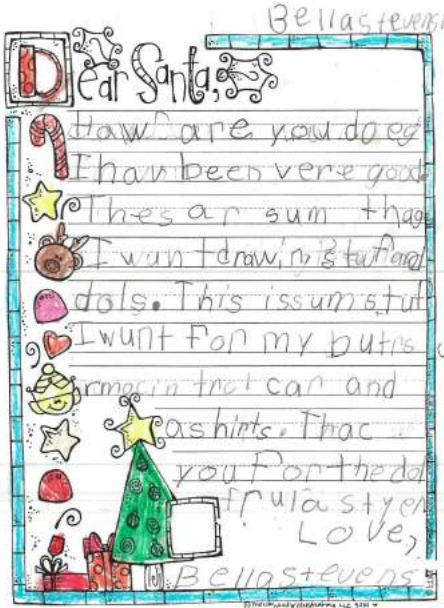 Bella stevens
Dear Santa,
Haw are you doeg
I hav been vere good.
Thes ar sum thag
I wunt drawing stuf and
dols. This is sum stuf
I wunt for my butrs
car and
a shirts. Thac
you for the dol
frum la styer
Love,
Bella stevens